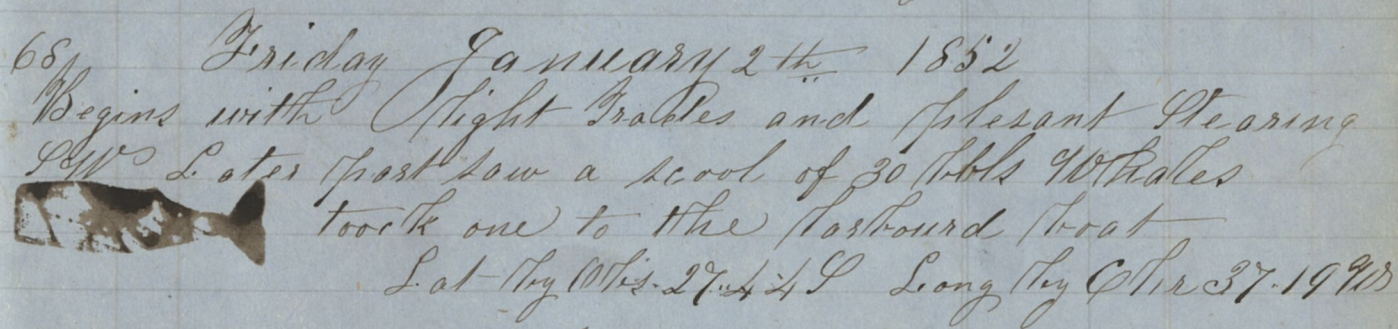 68, Friday January 2th 1852
Begins with light Trades and plesant Stearing
SW Later part saw a scool of 30 bbls Whales
toock one to the larbourd boat
Lat by Obs. 27..44 S Long by Chr 37.19 W